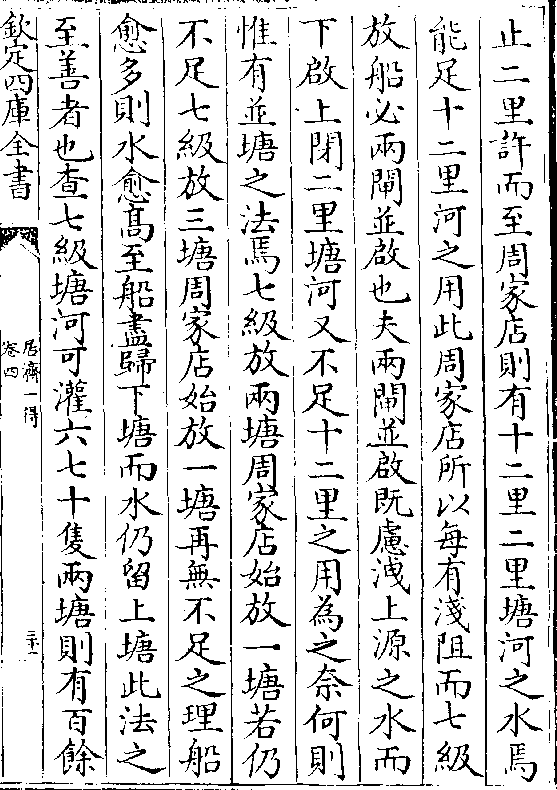 止二里許而至周家店則有十二里二里塘河之水焉
能足十二里河之用此周家店所以每有淺阻而七級
放船必兩閘並啟也夫兩閘並啟既慮洩上源之水而
下啟上閉二里塘河又不足十二里之用為之奈何則
惟有並塘之法焉七級放兩塘周家店始放一塘若仍
不足七級放三塘周家店始放一塘再無不足之理船
愈多則水愈髙至船盡歸下塘而水仍留上塘此法之
至善者也查七級塘河可灌六七十隻兩塘則有百餘
欽定四庫全書
居濟一得
卷四
二十一